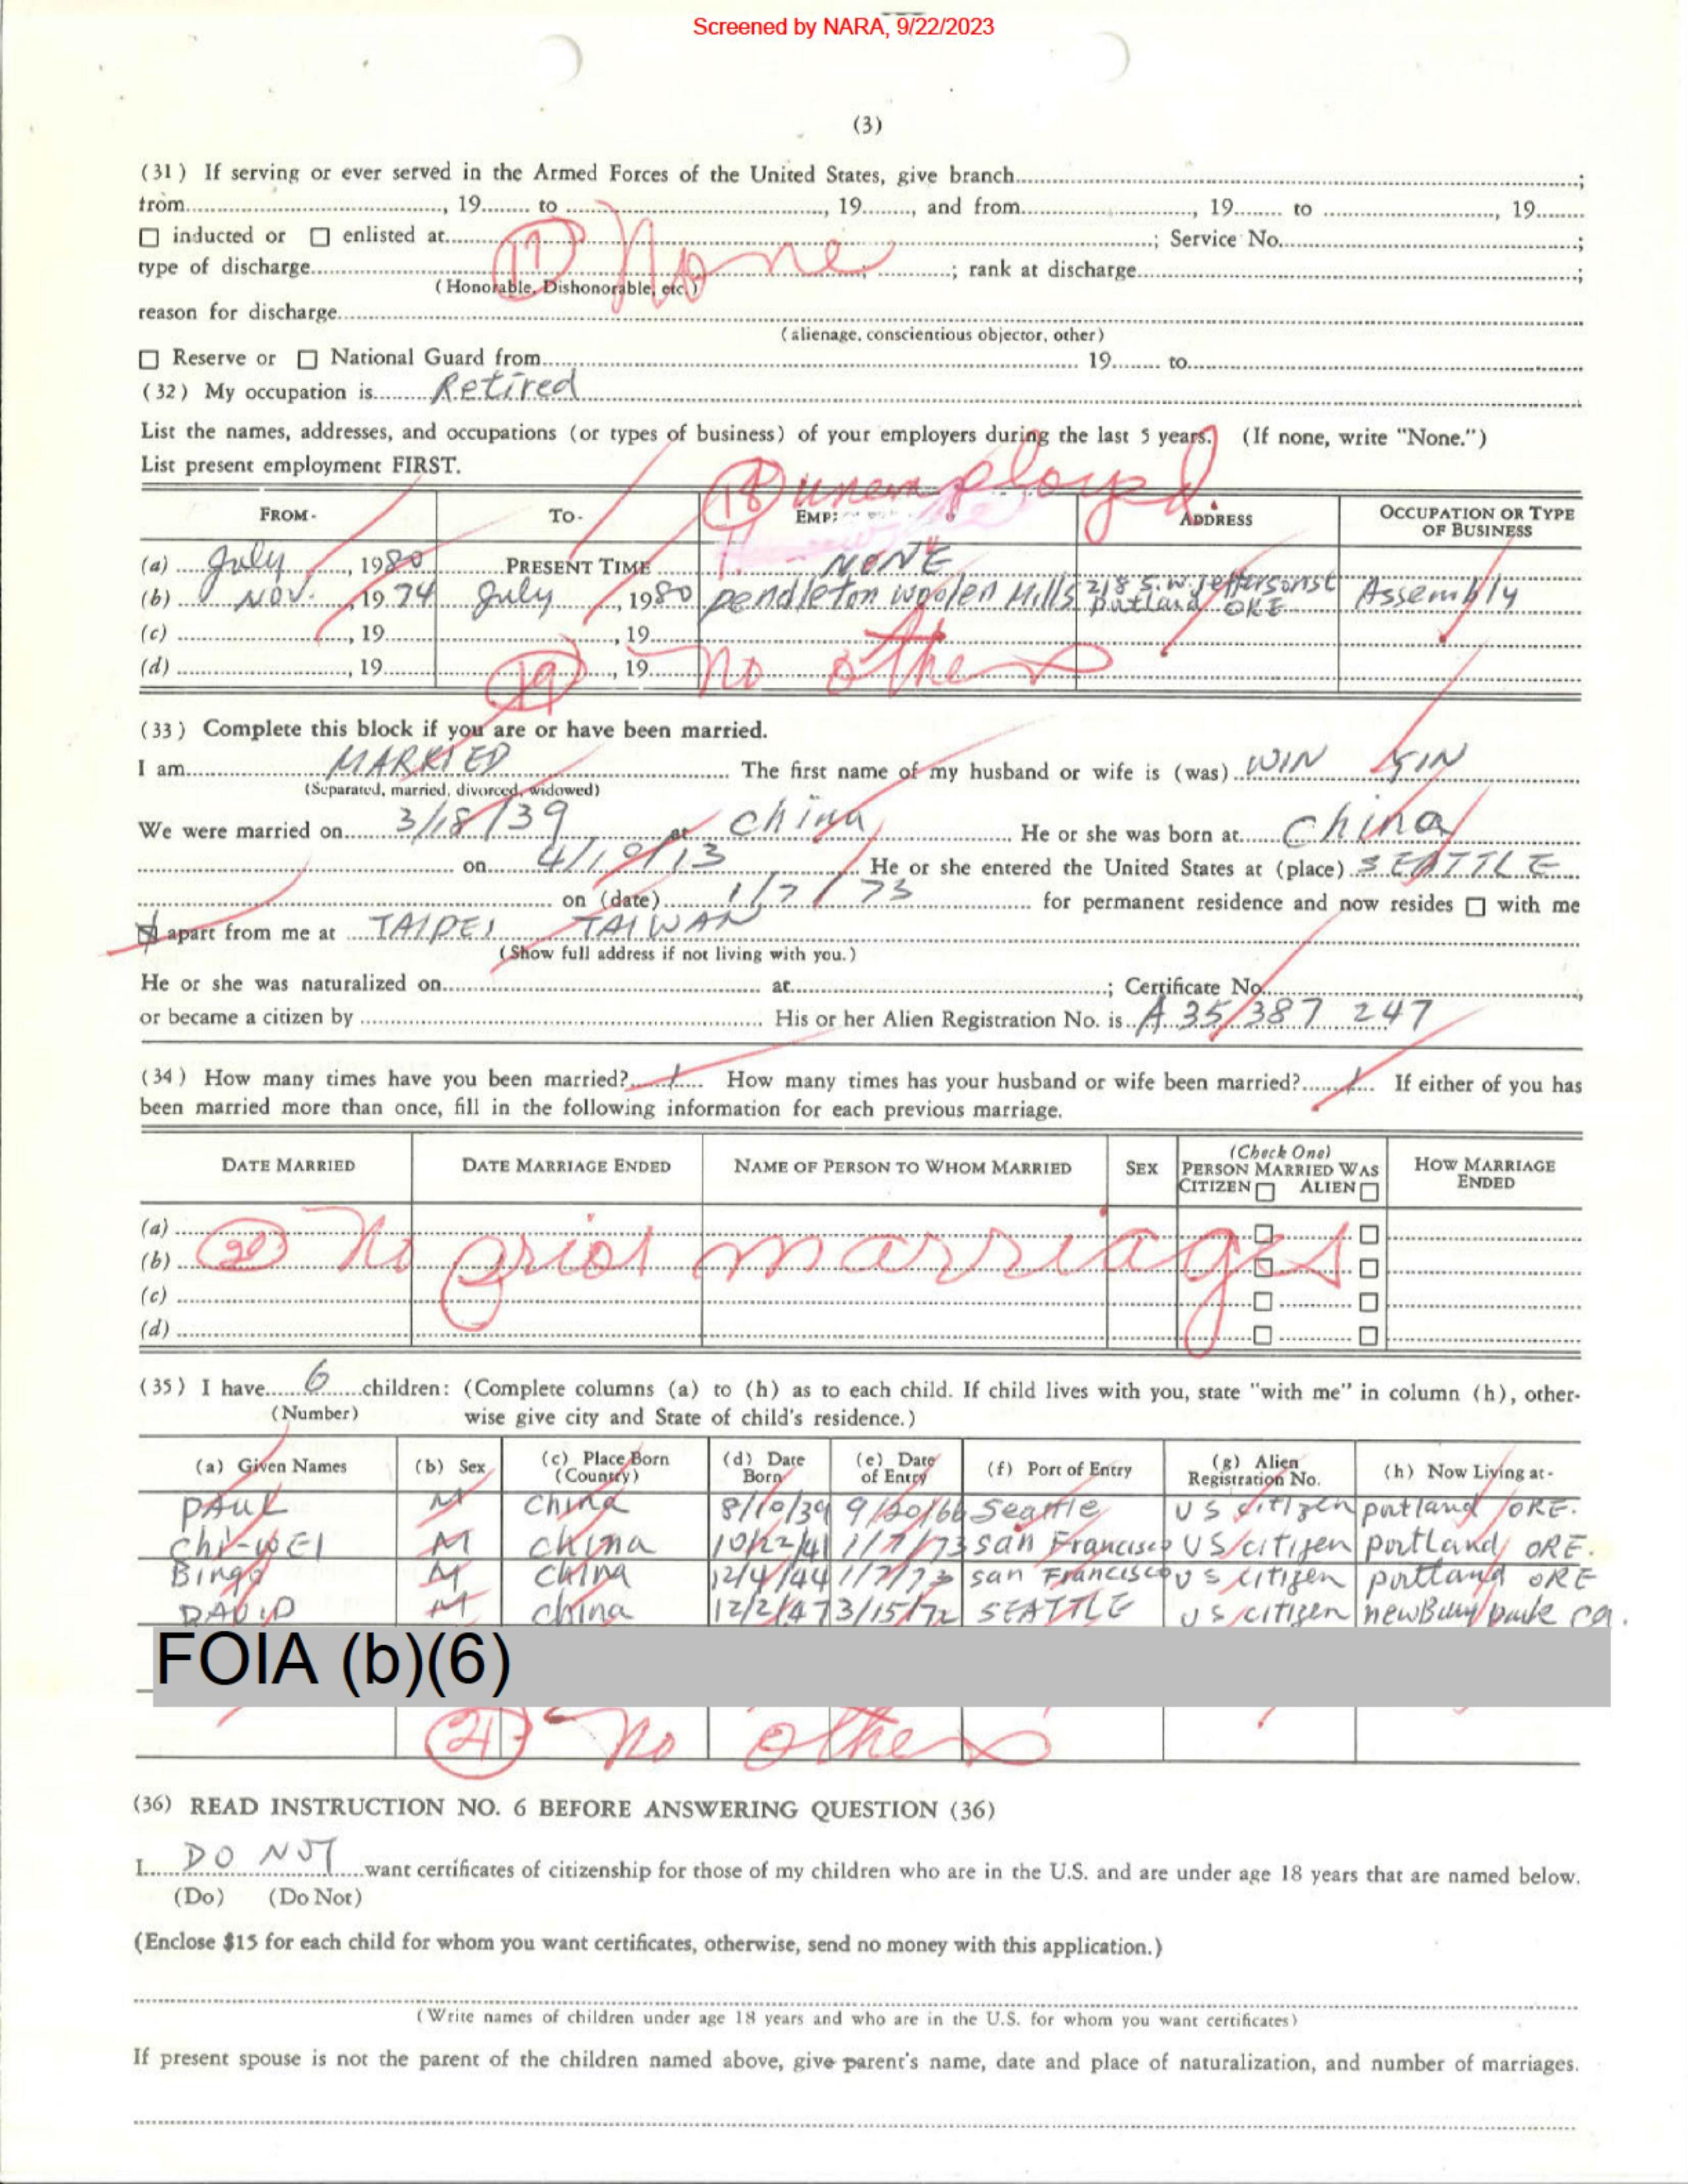 Screened by NARA, 9/22/2023
(3)
(31) If serving or ever served in the Armed Forces of the United States, give branch ;
from , 19 to , 19 , and from , 19 to , 19
☐ inducted or ☐ enlisted at ; Service No. ;
(17) None
type of discharge ; rank at discharge ;
(Honorable, Dishonorable, etc.)
reason for discharge
(alienage, conscientious objector, other)
☐ Reserve or ☐ National Guard from 19 to
(32) My occupation is Retired
List the names, addresses, and occupations (or types of business) of your employers during the last 5 years. (If none, write "None.")
List present employment FIRST.
(18) unemployed
FROM- TO- EMP ADDRESS OCCUPATION OR TYPE OF BUSINESS
(a) July , 1980 PRESENT TIME NONE
(b) Nov. , 1974 July , 1980 pendleton woolen Mills 218 S.W. Jefferson st Portland ORE Assembly
(c) , 19 , 19
(d) , 19 , 19
(19) no others
(33) Complete this block if you are or have been married.
I am MARRIED The first name of my husband or wife is (was) WIN
(Separated, married, divorced, widowed)
We were married on 3/18/39 at china He or she was born at china
on 4/10/13 He or she entered the United States at (place) SEATTLE
on (date) 1/7/73 for permanent residence and now resides ☐ with me
☒ apart from me at TAIPEI TAIWAN
(Show full address if not living with you.)
He or she was naturalized on at ; Certificate No. ,
or became a citizen by His or her Alien Registration No. is A 35 387 247
(34) How many times have you been married? 1 How many times has your husband or wife been married? 1 If either of you has
been married more than once, fill in the following information for each previous marriage.
DATE MARRIED DATE MARRIAGE ENDED NAME OF PERSON TO WHOM MARRIED SEX (Check One) PERSON MARRIED WAS CITIZEN ☐ ALIEN ☐ HOW MARRIAGE ENDED
(a) ☐ ☐
(b) ☐ ☐
(20) No prior marriages
(c) ☐ ☐
(d) ☐ ☐
(35) I have 6 children: (Complete columns (a) to (h) as to each child. If child lives with you, state "with me" in column (h), other-
(Number) wise give city and State of child's residence.)
(a) Given Names (b) Sex (c) Place Born (Country) (d) Date Born (e) Date of Entry (f) Port of Entry (g) Alien Registration No. (h) Now Living at-
PAUL M China 8/10/39 9/20/66 Seattle US citizen portland ORE.
Chi-WEI M china 10/22/41 1/7/73 san Francisco US citizen portland ORE.
Bingo M China 12/4/44 1/7/73 san Francisco US citizen portland ORE
DAVID M china 12/2/47 3/15/72 SEATTLE US citizen newBury park ca.
FOIA (b)(6)
(21) no others
(36) READ INSTRUCTION NO. 6 BEFORE ANSWERING QUESTION (36)
I DO NOT want certificates of citizenship for those of my children who are in the U.S. and are under age 18 years that are named below.
(Do) (Do Not)
(Enclose $15 for each child for whom you want certificates, otherwise, send no money with this application.)
(Write names of children under age 18 years and who are in the U.S. for whom you want certificates)
If present spouse is not the parent of the children named above, give parent's name, date and place of naturalization, and number of marriages.